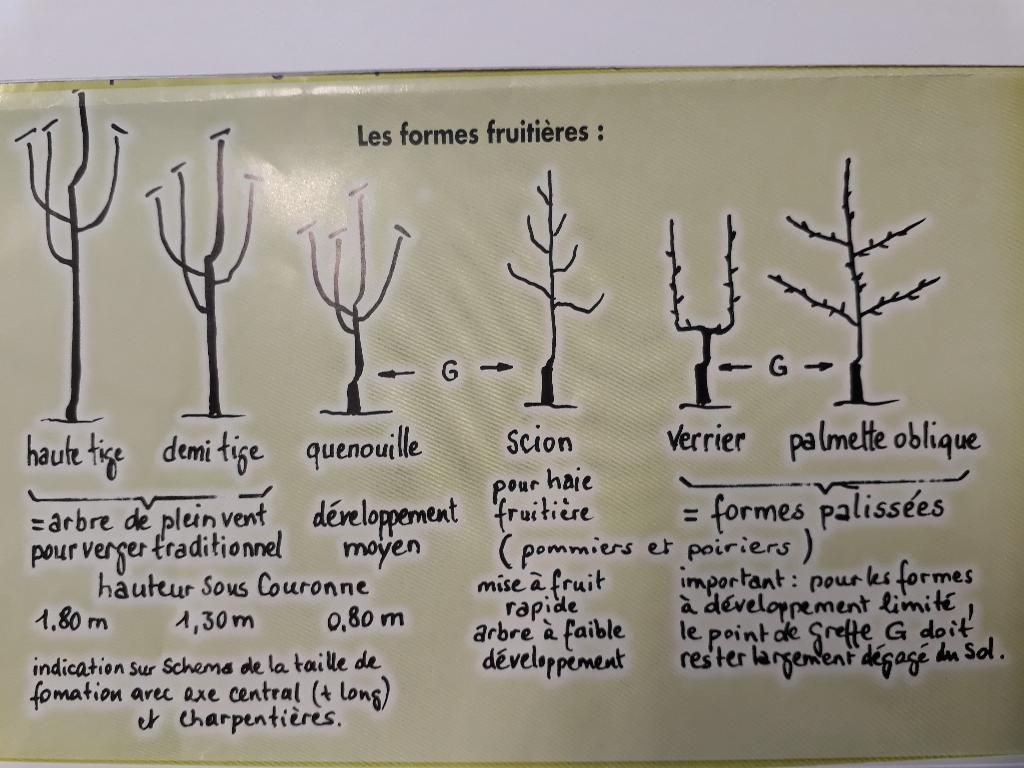 Les formes fruitières :
← G →
← G →
haute tige demi tige quenouille scion Verrier palmette oblique
= arbre de plein vent
pour verger traditionnel
développement
moyen
pour haie
fruitière
= formes palissées
( pommiers et poiriers )
hauteur sous Couronne
1.80 m 1,30 m 0.80 m
mise à fruit
rapide
arbre à faible
développement
important : pour les formes
à développement limité,
le point de Greffe G doit
rester largement dégagé du Sol.
indication sur Schema de la taille de
fomation avec axe central (+ long)
et charpentières.